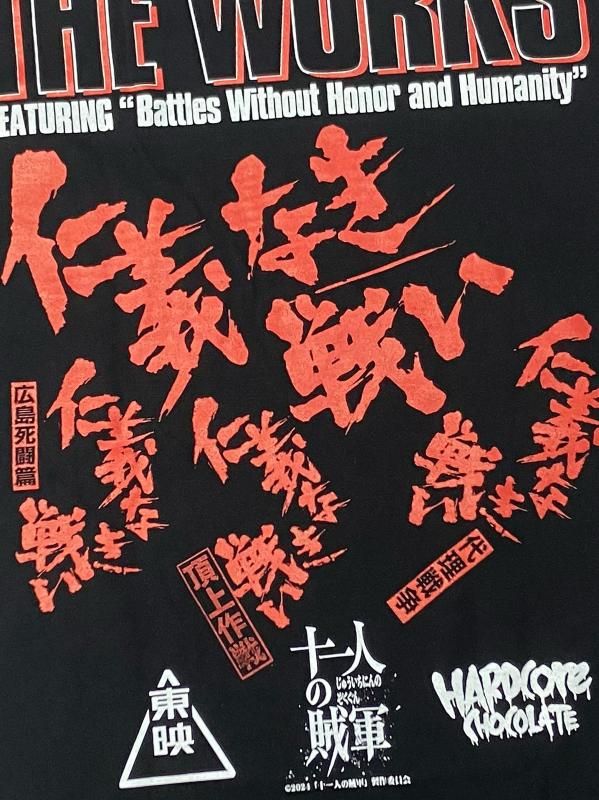 THE WORKS
EATURING “Battles Without Honor and Humanity”
仁義なき
戦い
仁義なき
戦い
広島死闘篇
仁義なき
戦い
頂上作戦
仁義なき
戦い
代理戦争
東映
十一人
の
じゅういちにんの
ぞくぐん
賊軍
HARDCORE
CHOCOLATE
©2024「十一人の賊軍」製作委員会